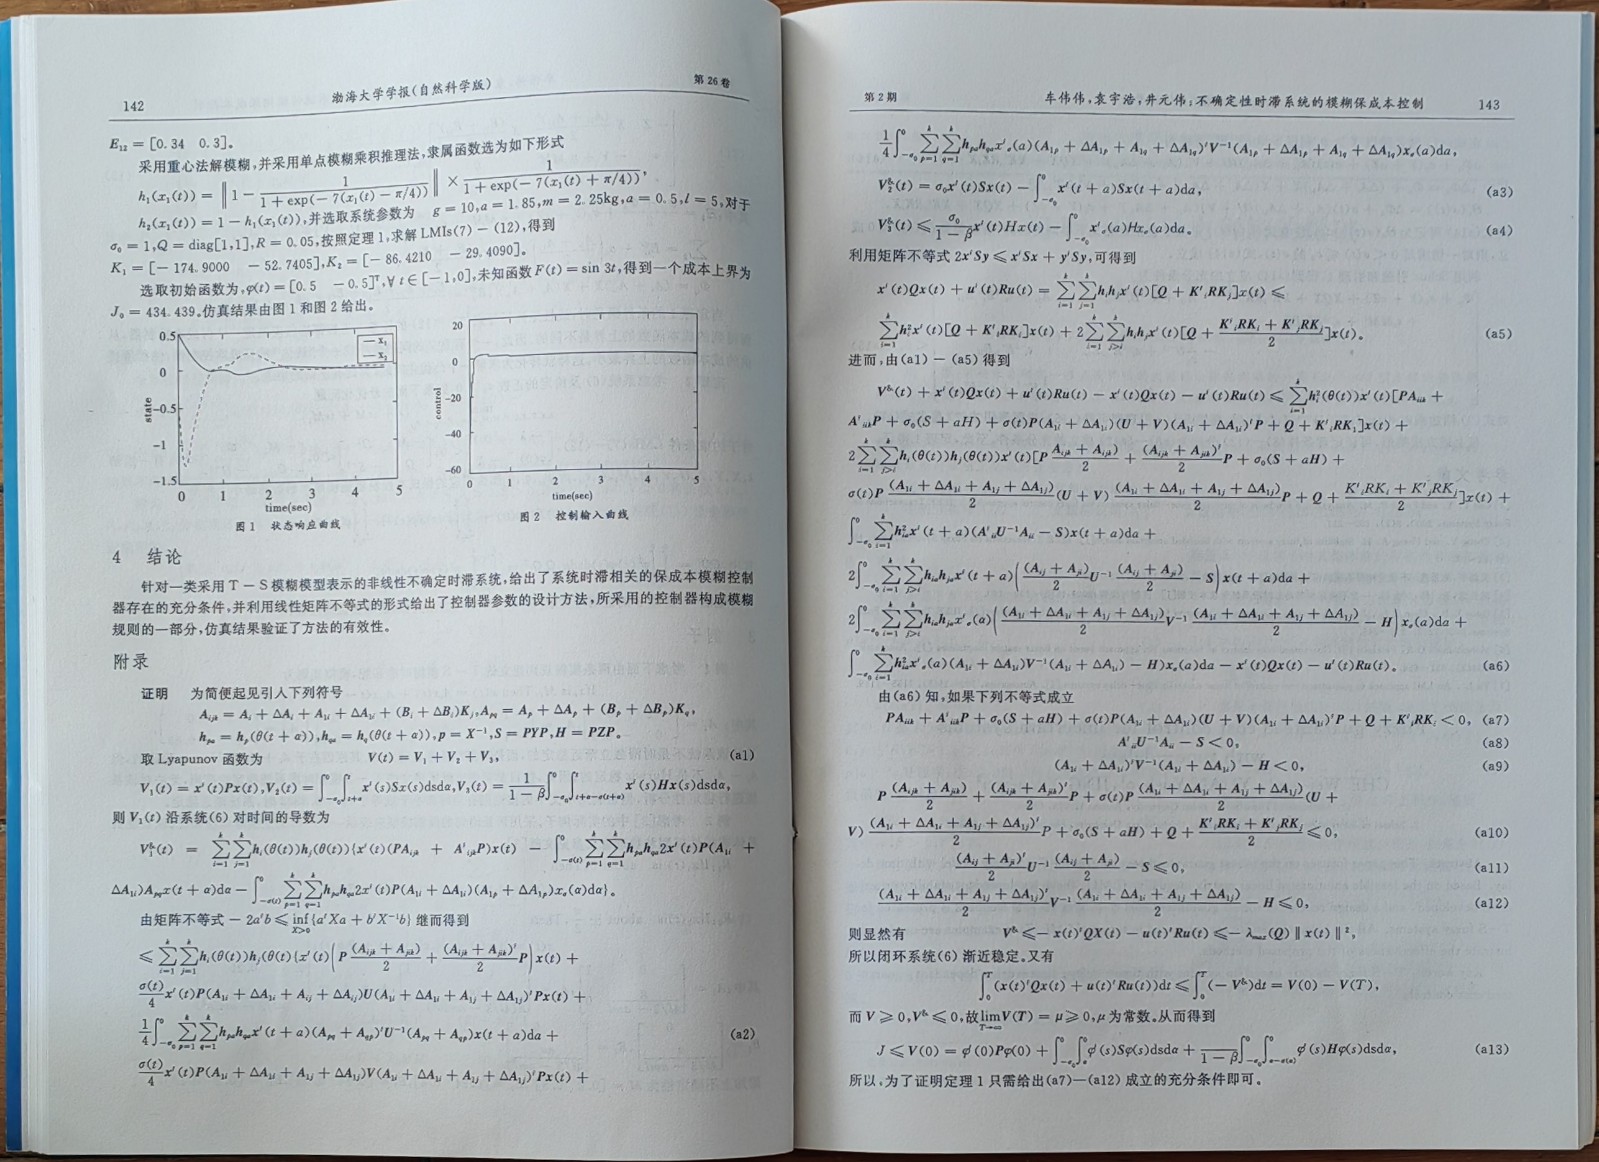 142
渤海大学学报(自然科学版)
第26卷
E₁₂ = [0.34 0.3]。
采用重心法解模糊,并采用单点模糊乘积推理法,隶属函数选为如下形式
h₁(x₁(t)) = ‖1 − 1/(1 + exp(− 7(x₁(t) − π/4)))‖ × 1/(1 + exp(− 7(x₁(t) + π/4))),
h₂(x₁(t)) = 1 − h₁(x₁(t)),并选取系统参数为 g = 10,a = 1.85,m = 2.25kg,a = 0.5,l = 5,对于
σ₀ = 1,Q = diag[1,1],R = 0.05,按照定理1,求解 LMIs(7) − (12),得到
K₁ = [− 174.9000 − 52.7405],K₂ = [− 86.4210 − 29.4090]。
选取初始函数为,φ(t) = [0.5 − 0.5]ᵀ,∀ t ∈ [− 1,0],未知函数 F(t) = sin 3t,得到一个成本上界为
J₀ = 434.439。仿真结果由图1和图2给出。
0.5
0
−0.5
−1
−1.5
state
x₁
x₂
0 1 2 3 4 5
time(sec)
图1 状态响应曲线
20
0
−20
−40
−60
control
0 1 2 3 4 5
time(sec)
图2 控制输入曲线
4 结论
针对一类采用 T − S 模糊模型表示的非线性不确定时滞系统,给出了系统时滞相关的保成本模糊控制
器存在的充分条件,并利用线性矩阵不等式的形式给出了控制器参数的设计方法,所采用的控制器构成模糊
规则的一部分,仿真结果验证了方法的有效性。
附录
证明 为简便起见引入下列符号
Aᵢⱼₖ = Aᵢ + ΔAᵢ + A₁ᵢ + ΔA₁ᵢ + (Bᵢ + ΔBᵢ)Kⱼ, A_pq = A_p + ΔA_p + (B_p + ΔB_p)K_q,
h_pα = h_p(θ(t + α)), h_qα = h_q(θ(t + α)), p = X⁻¹, S = PYP, H = PZP。
取 Lyapunov 函数为 V(t) = V₁ + V₂ + V₃, (a1)
V₁(t) = x′(t)Px(t), V₂(t) = ∫_{−σ₀}^0 ∫_{t+α}^t x′(s)Sx(s)dsdα, V₃(t) = 1/(1 − β) ∫_{−σ₀}^0 ∫_{t+α−σ(t+α)}^t x′(s)Hx(s)dsdα,
则 V₁(t) 沿系统(6) 对时间的导数为
V&₁(t) = Σ_{i=1}^k Σ_{j=1}^k hᵢ(θ(t))hⱼ(θ(t)){x′(t)(PAᵢⱼₖ + A′ᵢⱼₖP)x(t) − ∫_{−σ(t)}^0 Σ_{p=1}^k Σ_{q=1}^k h_pα h_qα 2x′(t)P(A₁ᵢ +
ΔA₁ᵢ)A_pq x(t + α)dα − ∫_{−σ(t)}^0 Σ_{p=1}^k Σ_{q=1}^k h_pα h_qα 2x′(t)P(A₁ᵢ + ΔA₁ᵢ)(A₁p + ΔA₁p)x_σ(α)dα}。
由矩阵不等式 − 2a′b ⩽ inf_{X>0} {a′Xa + b′X⁻¹b} 继而得到
⩽ Σ_{i=1}^k Σ_{j=1}^k hᵢ(θ(t))hⱼ(θ(t){x′(t)(P (Aᵢⱼₖ + Aⱼᵢₖ)/2 + (Aᵢⱼₖ + Aⱼᵢₖ)′/2 P)x(t) +
σ(t)/4 x′(t)P(A₁ᵢ + ΔA₁ᵢ + A₁ⱼ + ΔA₁ⱼ)U(A₁ᵢ + ΔA₁ᵢ + A₁ⱼ + ΔA₁ⱼ)′Px(t) +
1/4 ∫_{−σ₀}^0 Σ_{p=1}^k Σ_{q=1}^k h_pα h_qα x′(t + α)(A_pq + A_qp)′U⁻¹(A_pq + A_qp)x(t + α)dα + (a2)
σ(t)/4 x′(t)P(A₁ᵢ + ΔA₁ᵢ + A₁ⱼ + ΔA₁ⱼ)V(A₁ᵢ + ΔA₁ᵢ + A₁ⱼ + ΔA₁ⱼ)′Px(t) +
第2期
车伟伟,袁宇浩,井元伟:不确定性时滞系统的模糊保成本控制
143
1/4 ∫_{−σ₀}^0 Σ_{p=1}^k Σ_{q=1}^k h_pα h_qα x′_σ(α)(A₁p + ΔA₁p + A₁q + ΔA₁q)′V⁻¹(A₁p + ΔA₁p + A₁q + ΔA₁q)x_σ(α)dα,
V&₂(t) = σ₀x′(t)Sx(t) − ∫_{−σ₀}^0 x′(t + α)Sx(t + α)dα, (a3)
V&₃(t) ⩽ σ₀/(1 − β) x′(t)Hx(t) − ∫_{−σ₀}^0 x′_σ(α)Hx_σ(α)dα。 (a4)
利用矩阵不等式 2x′Sy ⩽ x′Sx + y′Sy,可得到
x′(t)Qx(t) + u′(t)Ru(t) = Σ_{i=1}^k Σ_{j=1}^k hᵢhⱼx′(t)[Q + K′ᵢRKⱼ]x(t) ⩽
Σ_{i=1}^k hᵢ²x′(t)[Q + K′ᵢRKᵢ]x(t) + 2Σ_{i=1}^k Σ_{j>i}^k hᵢhⱼx′(t)[Q + (K′ᵢRKᵢ + K′ⱼRKⱼ)/2]x(t)。 (a5)
进而,由(a1) − (a5) 得到
V&(t) + x′(t)Qx(t) + u′(t)Ru(t) − x′(t)Qx(t) − u′(t)Ru(t) ⩽ Σ_{i=1}^k hᵢ²(θ(t))x′(t)[PAᵢᵢₖ +
A′ᵢᵢₖP + σ₀(S + aH) + σ(t)P(A₁ᵢ + ΔA₁ᵢ)(U + V)(A₁ᵢ + ΔA₁ᵢ)′P + Q + K′ᵢRK₁]x(t) +
2Σ_{i=1}^k Σ_{j>i}^k hᵢ(θ(t))hⱼ(θ(t))x′(t)[P (Aᵢⱼₖ + Aⱼᵢₖ)/2 + (Aᵢⱼₖ + Aⱼᵢₖ)′/2 P + σ₀(S + aH) +
σ(t)P (A₁ᵢ + ΔA₁ᵢ + A₁ⱼ + ΔA₁ⱼ)/2 (U + V) (A₁ᵢ + ΔA₁ᵢ + A₁ⱼ + ΔA₁ⱼ)/2 P + Q + (K′ᵢRKᵢ + K′ⱼRKⱼ)/2]x(t) +
∫_{−σ₀}^0 Σ_{i=1}^k h²ᵢα x′(t + α)(A′ᵢᵢU⁻¹Aᵢᵢ − S)x(t + α)dα +
2∫_{−σ₀}^0 Σ_{i=1}^k Σ_{j>i}^k hᵢα hⱼα x′(t + α)((Aᵢⱼ + Aⱼᵢ)/2 U⁻¹ (Aᵢⱼ + Aⱼᵢ)/2 − S)x(t + α)dα +
2∫_{−σ₀}^0 Σ_{i=1}^k Σ_{j>i}^k hᵢα hⱼα x′_σ(α)((A₁ᵢ + ΔA₁ᵢ + A₁ⱼ + ΔA₁ⱼ)/2 V⁻¹ (A₁ᵢ + ΔA₁ᵢ + A₁ⱼ + ΔA₁ⱼ)/2 − H)x_σ(α)dα +
∫_{−σ₀}^0 Σ_{i=1}^k h²ᵢα x′_σ(α)(A₁ᵢ + ΔA₁ᵢ)V⁻¹(A₁ᵢ + ΔA₁ᵢ) − H)x_σ(α)dα − x′(t)Qx(t) − u′(t)Ru(t)。 (a6)
由(a6) 知,如果下列不等式成立
PAᵢᵢₖ + A′ᵢᵢₖP + σ₀(S + aH) + σ(t)P(A₁ᵢ + ΔA₁ᵢ)(U + V)(A₁ᵢ + ΔA₁ᵢ)′P + Q + K′ᵢRKᵢ < 0, (a7)
A′ᵢᵢU⁻¹Aᵢᵢ − S < 0, (a8)
(A₁ᵢ + ΔA₁ᵢ)′V⁻¹(A₁ᵢ + ΔA₁ᵢ) − H < 0, (a9)
P (Aᵢⱼₖ + Aⱼᵢₖ)/2 + (Aᵢⱼₖ + Aⱼᵢₖ)′/2 P + σ(t)P (A₁ᵢ + ΔA₁ᵢ + A₁ⱼ + ΔA₁ⱼ)/2 (U +
V) (A₁ᵢ + ΔA₁ᵢ + A₁ⱼ + ΔA₁ⱼ)′/2 P + σ₀(S + aH) + Q + (K′ᵢRKᵢ + K′ⱼRKⱼ)/2 ⩽ 0, (a10)
(Aᵢⱼ + Aⱼᵢ)′/2 U⁻¹ (Aᵢⱼ + Aⱼᵢ)/2 − S ⩽ 0, (a11)
(A₁ᵢ + ΔA₁ᵢ + A₁ⱼ + ΔA₁ⱼ)′/2 V⁻¹ (A₁ᵢ + ΔA₁ᵢ + A₁ⱼ + ΔA₁ⱼ)/2 − H ⩽ 0, (a12)
则显然有 V& ⩽ − x(t)′QX(t) − u(t)′Ru(t) ⩽ − λ_max(Q) ‖ x(t) ‖²,
所以闭环系统(6) 渐近稳定。又有
∫₀ᵀ (x(t)′Qx(t) + u(t)′Ru(t))dt ⩽ ∫₀ᵀ (− V&)dt = V(0) − V(T),
而 V ⩾ 0,V& ⩽ 0,故 lim_{T→∞} V(T) = μ ⩾ 0,μ 为常数。从而得到
J ⩽ V(0) = φ′(0)Pφ(0) + ∫_{−σ₀}^0 ∫_α^0 φ′(s)Sφ(s)dsdα + 1/(1 − β) ∫_{−σ₀}^0 ∫_{α−σ(α)}^0 φ′(s)Hφ(s)dsdα, (a13)
所以,为了证明定理1只需给出(a7)—(a12) 成立的充分条件即可。